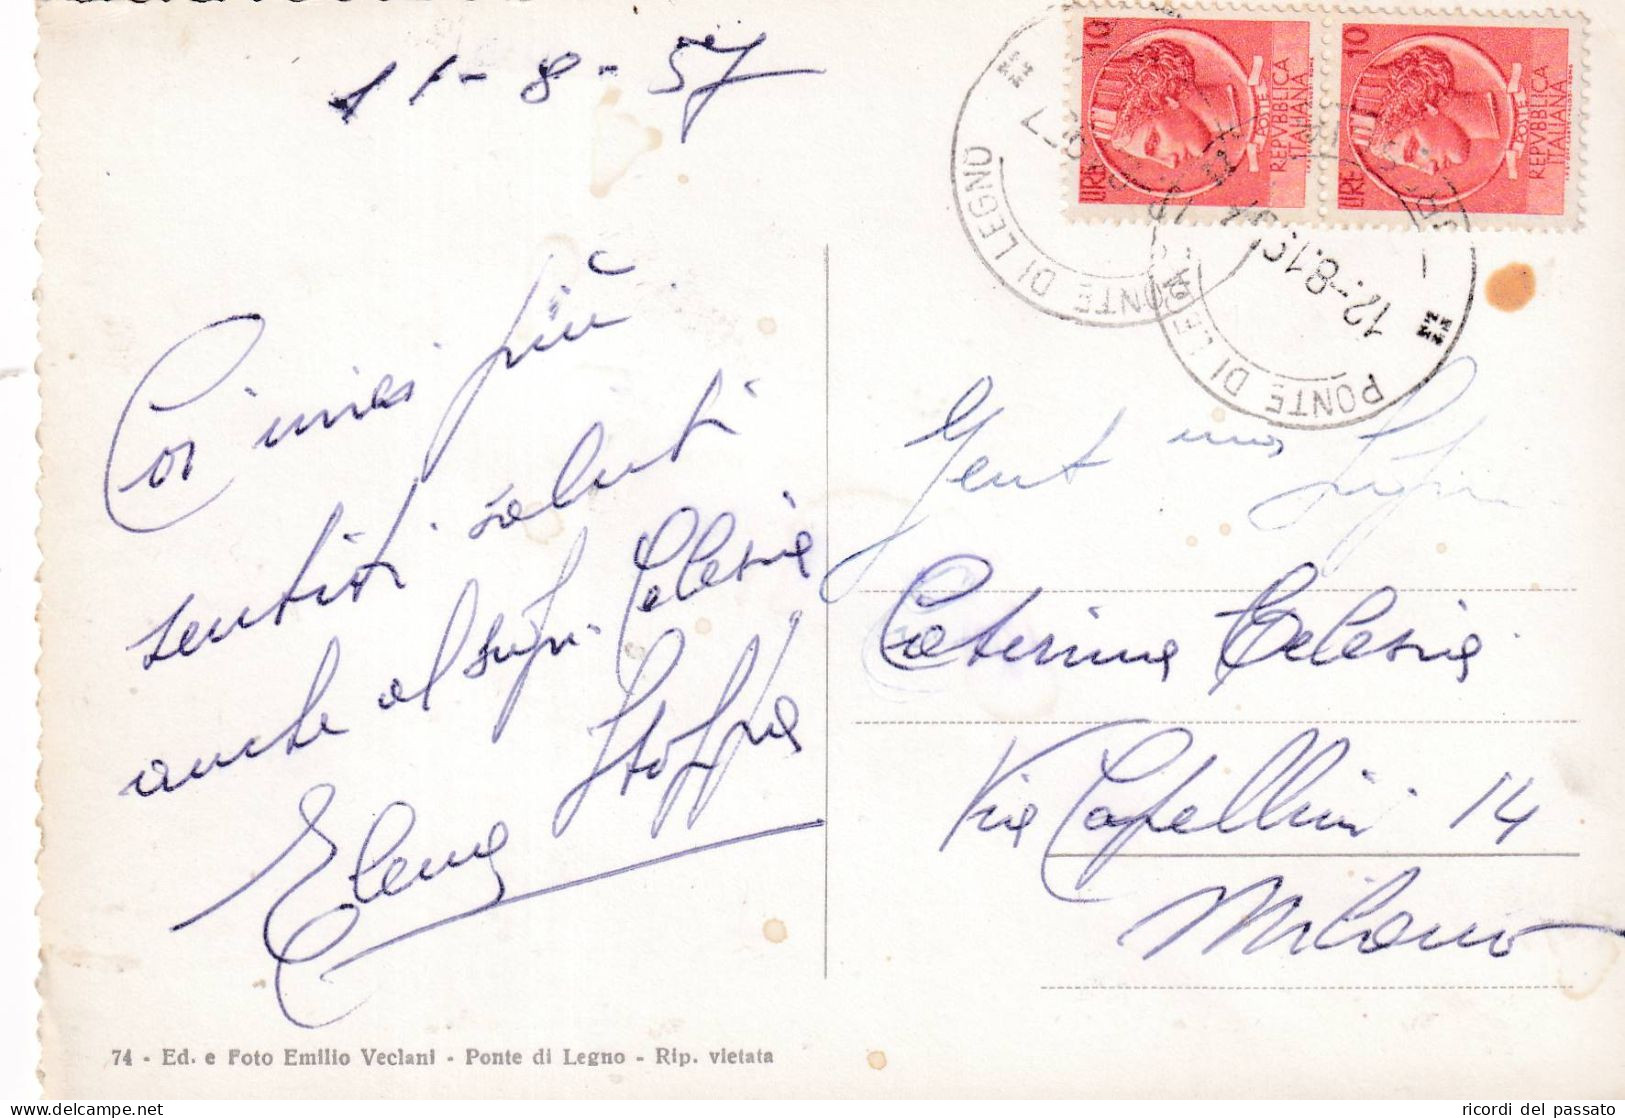 11-8-57
Coi miei più
sentiti saluti
anche al sign. Celesia
Elena Stoppa
74 - Ed. e Foto Emilio Veclani - Ponte di Legno - Rip. vietata
LIRE 10
POSTE
REPVBBLICA
ITALIANA
LIRE 10
POSTE
REPVBBLICA
ITALIANA
PONTE DI LEGNO
PONTE DI LEGNO
12.-8.19
Gent ma
Caterina Celesia
Via Capellini 14
Milano
ricordi del passato
delcampe.net